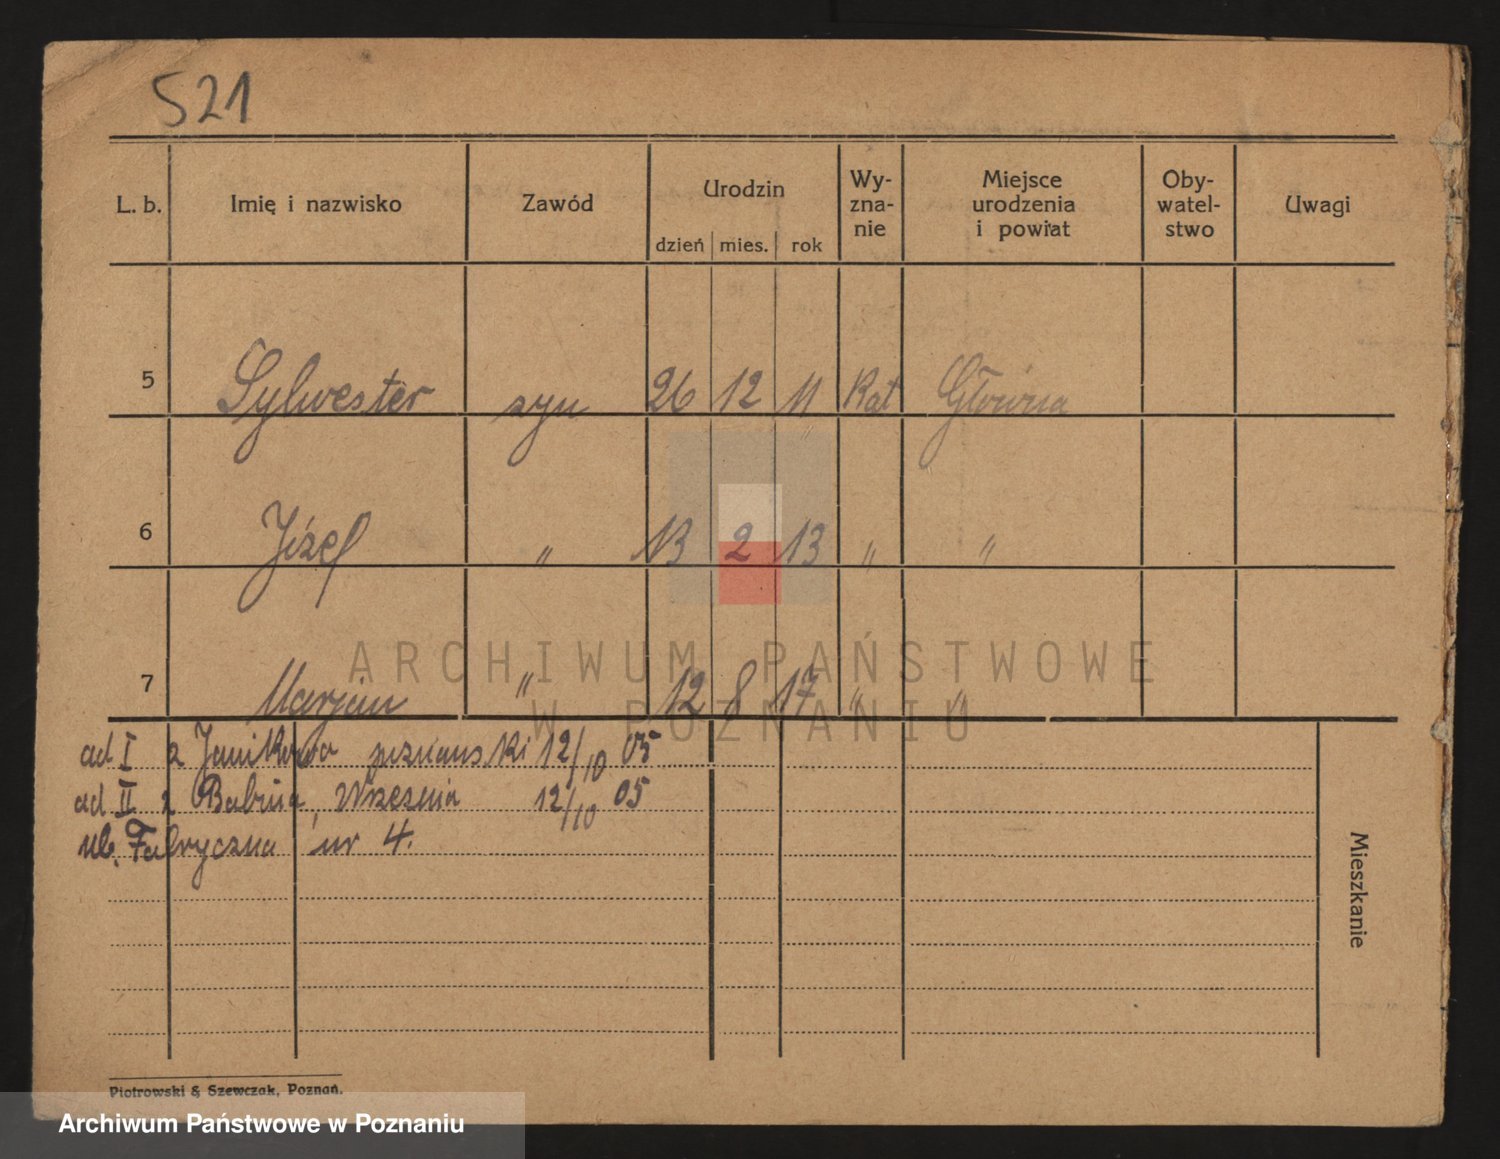 521
L. b. Imię i nazwisko Zawód Urodzin dzień mies. rok Wy-zna-nie Miejsce urodzenia i powiat Oby-watel-stwo Uwagi
5 Sylwester syn 26 12 11 Kat Główna
6 Józef " 13 2 13 " "
7 Marjan " 12 8 17 " "
ad I z Janikowa poznański 12/10 05
ad II z Babina, Września 12/10 05
ul. Fabryczna nr 4.
Mieszkanie
Piotrowski & Szewczak, Poznań.
ARCHIWUM PAŃSTWOWE
W POZNANIU
Archiwum Państwowe w Poznaniu